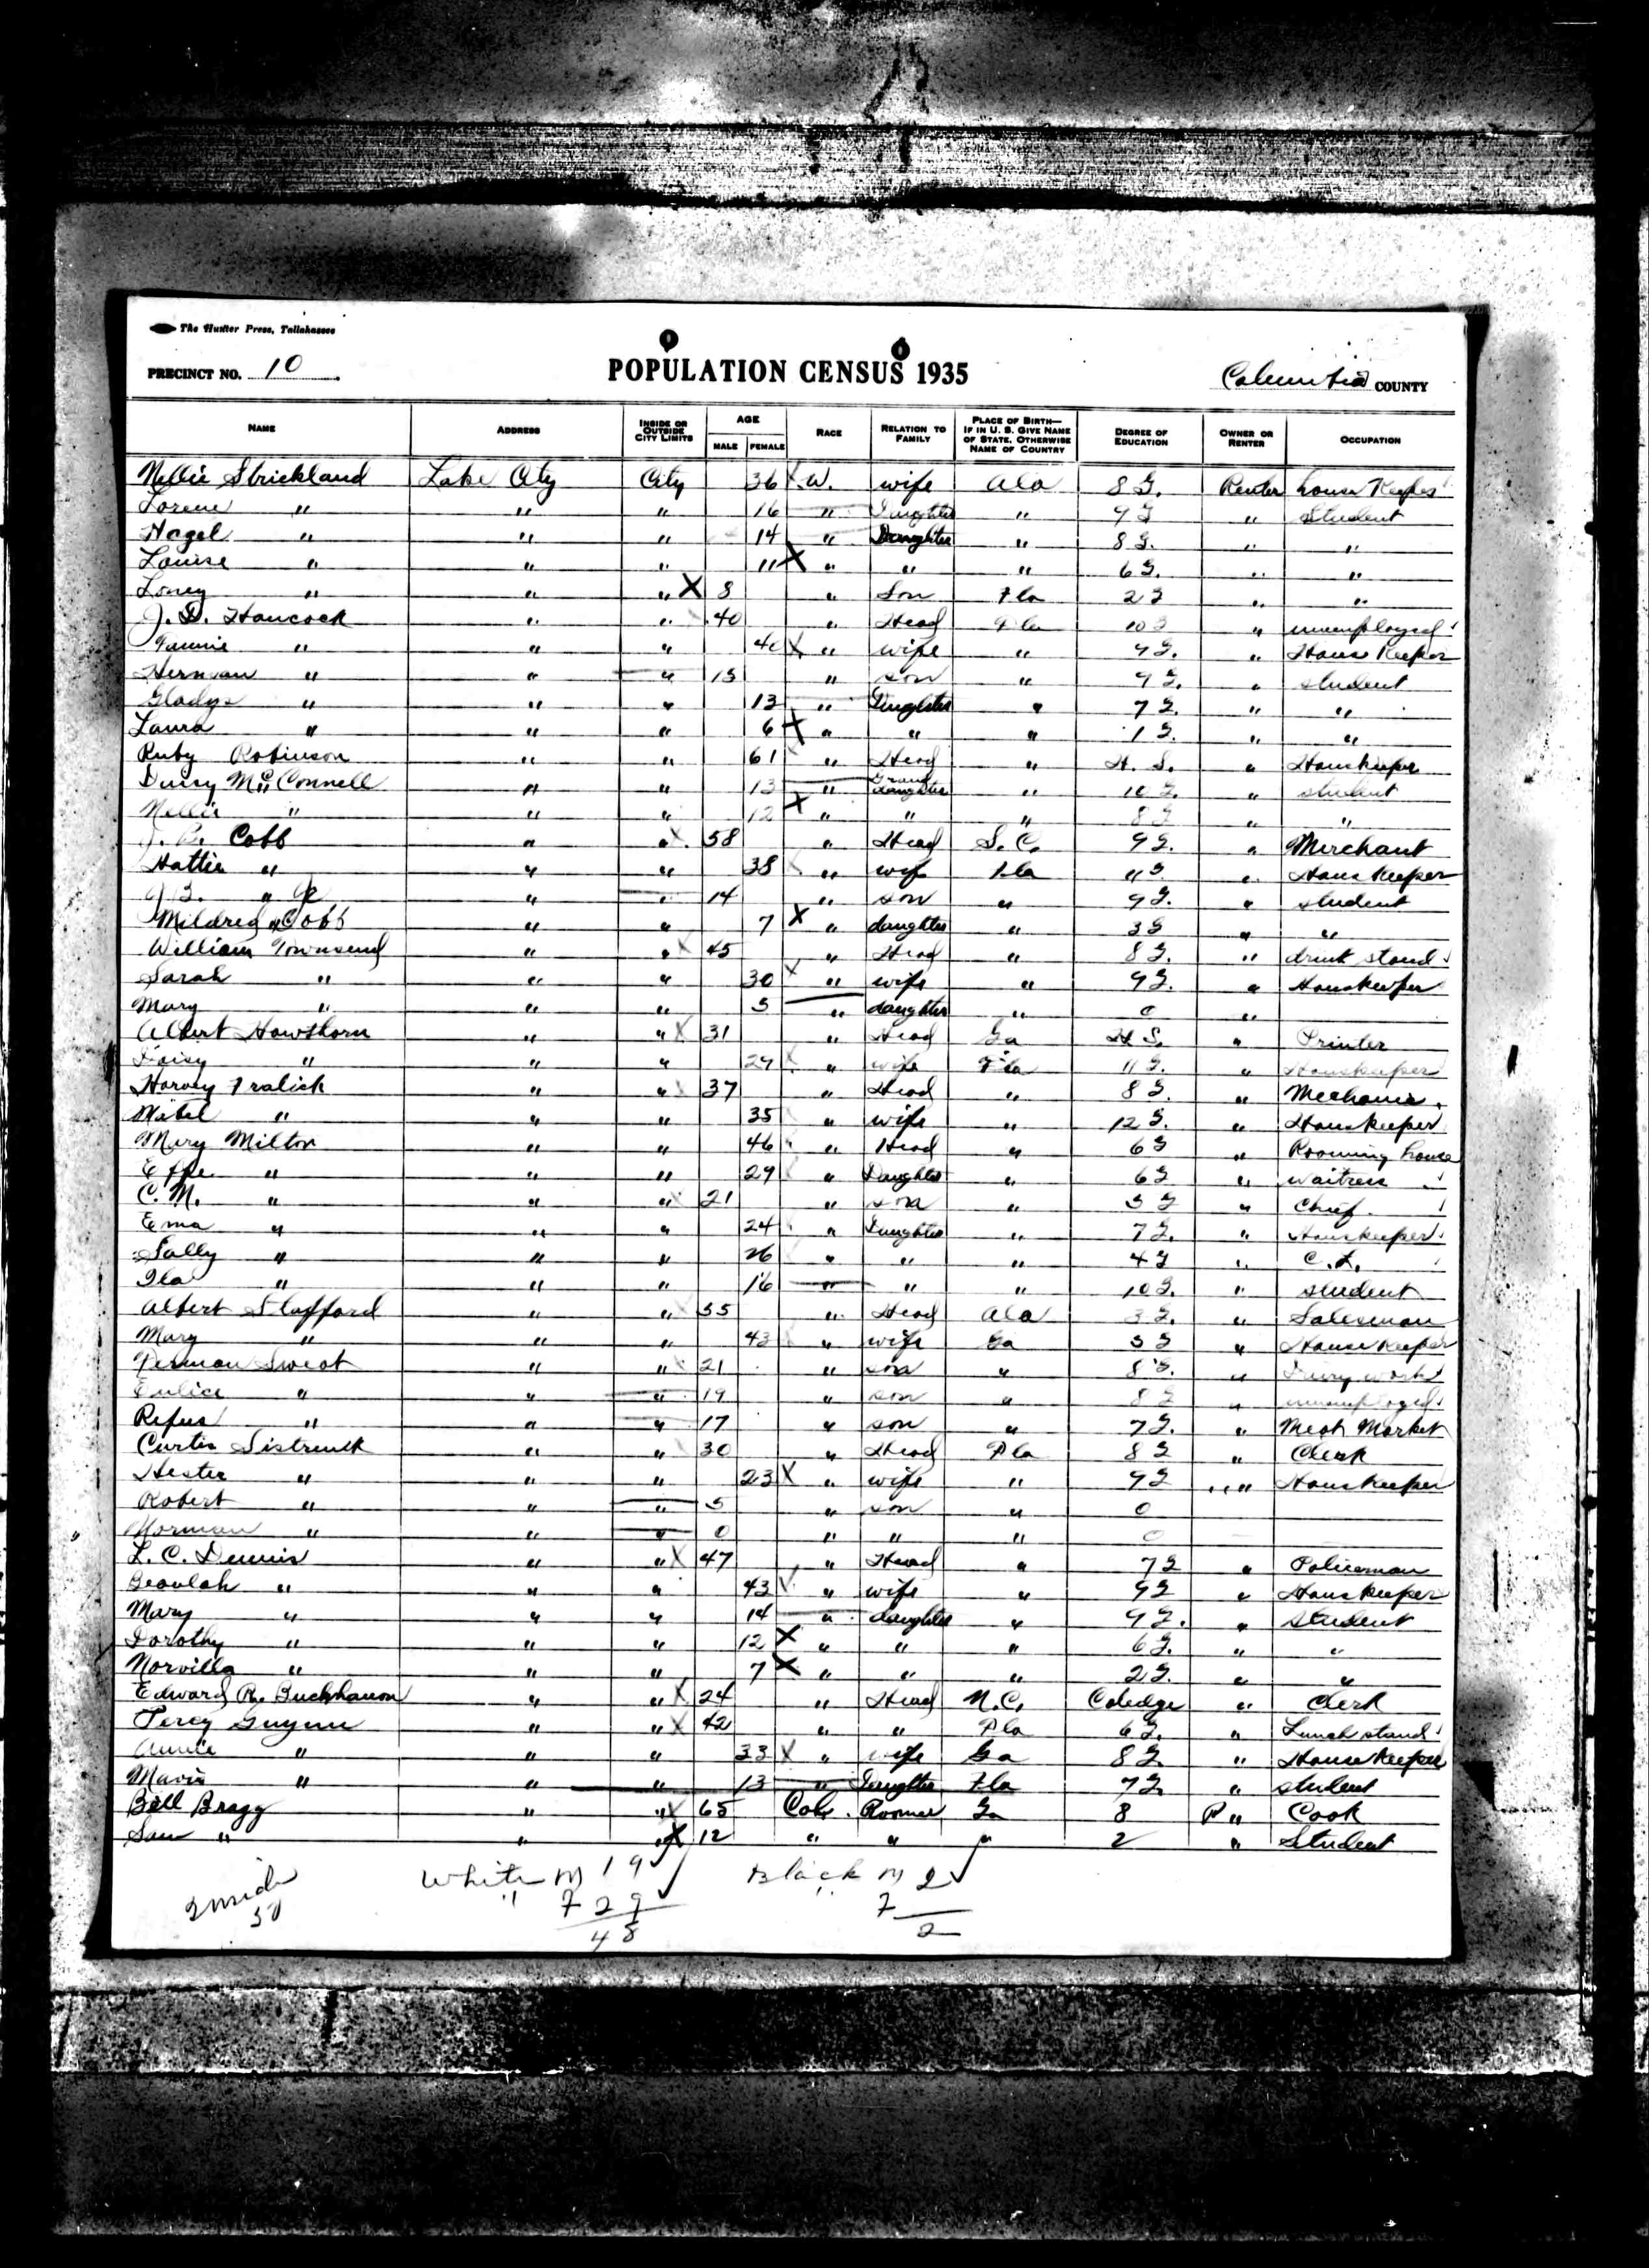 The Hunter Press, Tallahassee
PRECINCT NO. 10 POPULATION CENSUS 1935 Columbia COUNTY
NAME ADDRESS INSIDE OR OUTSIDE CITY LIMITS AGE MALE FEMALE RACE RELATION TO FAMILY PLACE OF BIRTH—IF IN U. S. GIVE NAME OF STATE, OTHERWISE NAME OF COUNTRY DEGREE OF EDUCATION OWNER OR RENTER OCCUPATION
Nellie Strickland Lake City City 36 X W. wife Ala 8 G. Renter house Keeper
Lorene " " " 16 " Daughter " 9 G " Student
Hazel " " " 14 " Daughter " 8 G. " "
Louise " " " 11 X " " " 6 G. " "
Loney " " " X 8 " Son Fla 2 G " "
J. D. Hancock " " 40 " Head Fla 10 G " unemployed
Fannie " " " 40 X " wife " 9 G. " House Keeper
Herman " " " 15 " son " 9 G. " student
Gladys " " " 13 " Daughter " 7 G. " "
Laura " " " 6 X " " " 1 G. " "
Ruby Robinson " " 61 " Head " H. S. " Houskeeper
Daisy McConnell " " 13 " Grand daughter " 10 G. " student
Nellie " " " 12 X " " " 8 G " "
J. B. Cobb " " X 58 " Head S. C. 9 G. " Merchant
Hattie " " " 38 " wife Fla 11 G. " Hous Keeper
J. B. " Jr " " 14 " son " 9 G. " student
Mildred Cobb " " 7 X " daughter " 3 G " "
William Townsend " " X 45 " Head " 8 G. " drink stand
Sarah " " " 30 X " wife " 9 G. " Houskeeper
Mary " " " 5 " daughter " 0 "
Albert Howthorn " " X 31 " Head Ga H S. " Printer
Daisy " " " 29 X " wife Fla 11 G. " Houskeeper
Harvey Fralick " " X 37 " Head " 8 G. " Mechanic.
Mabel " " " 35 " wife " 12 G. " Houskeeper
Mary Milton " " 46 " Head " 6 G " Rooming house
Effie " " " 29 " Daughter " 6 G " waitress
C. M. " " " X 21 " son " 5 G " Chief.
Ema " " " 24 " Daughter " 7 G. " Houskeeper
Sally " " " 26 " " " 4 G "
Ila " " " 16 " " " 10 G. " student
Albert Stafford " " 55 " Head Ala 3 G. " Salesman
Mary " " " 43 " wife Ga 5 G " House Keeper
Sweat " " X 21 " son " 8 G. "
" " " 19 " son " 8 G " unemployed
Rufus " " " 17 " son " 7 G. " Meat Market
Curtis Sistrunk " " 30 " Head Fla 8 G " Clerk
Hester " " " 23 X " wife " 9 G " Hous Keeper
Robert " " " 5 " son " 0
Norman " " " 0 " " " 0
L. C. Dennis " " X 47 " Head " 7 G " Policeman
Beaulah " " " 43 " wife " 9 G " Houskeeper
Mary " " " 14 " daughter " 9 G. " student
Dorothy " " " 12 X " " " 6 G. " "
Norvilla " " " 7 X " " " 2 G. " "
Edward R. Buckhanon " " X 24 " Head N. C. Coledge " Clerk
Percy Guynn " " X 42 " " Fla 6 G. " Lunch stand
Annie " " " 33 X " wife Ga 8 G. " House Keeper
Mavis " " " 13 " Daughter Fla 7 G. " student
Bill Bragg " " X 65 Col. Roomer Ga 8 R " Cook
Sam " " " X 12 " " " 2 " Student
Inside 50 White M 19 Black M 2
" F 29 " F
48 2